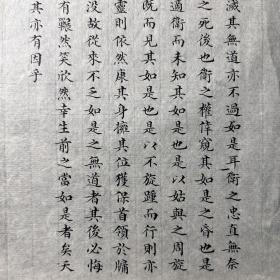 滅其無道亦不過如是耳衛之忠直無奈
之死後也衛之權窺其如是之昏也是
適衛而未知其如是也是以姑與之周旋
既而見其如是也是以不旋踵而行則亦
靈則依然康其身擁其位獲保首領於牖
沒故從來不乏如是之無道者其後必悔
有囅然笑欣然幸生前之當如是者矣天
其亦有因乎